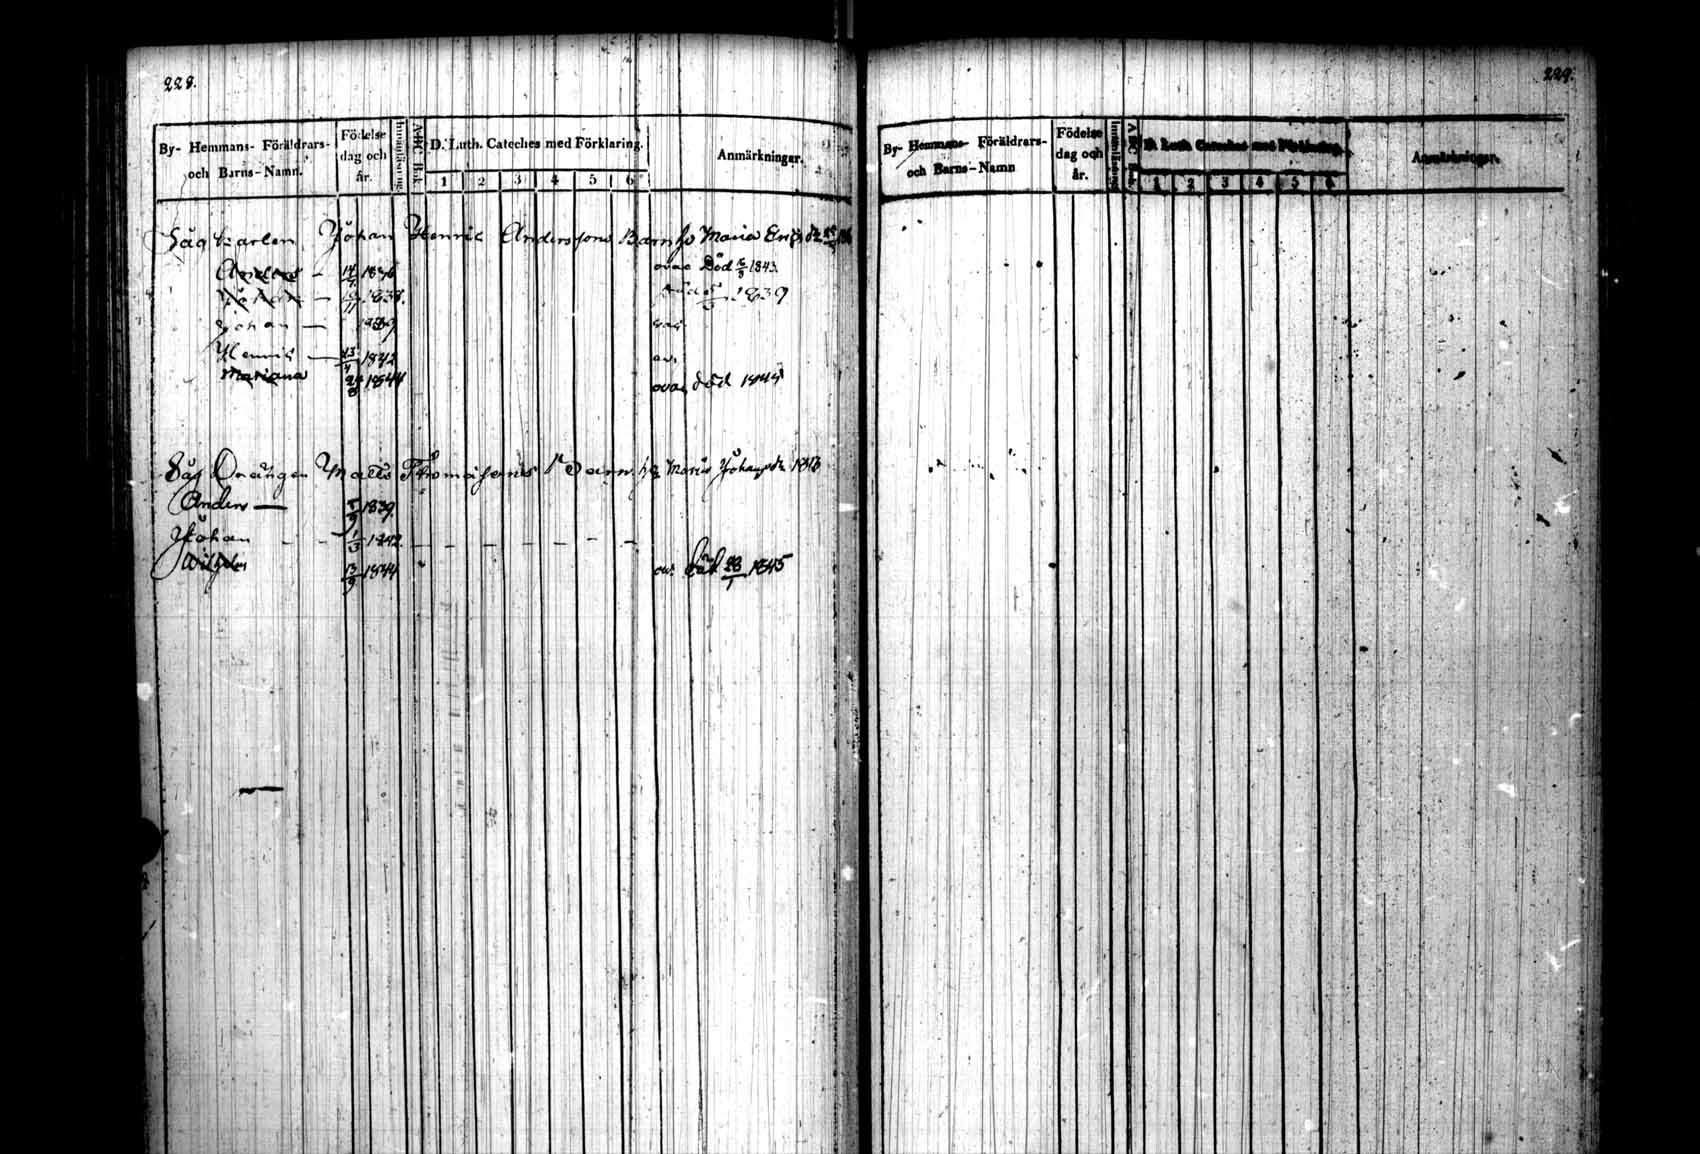 228.
By- Hemmans- Föräldrars- och Barns-Namn.
Födelse dag och år.
Innanläsning.
ABC Bok.
D. Luth. Cateches med Förklaring.
1 2 3 4 5 6
Anmärkningar.
Sågkarlen Johan Henric Anderssons Barn Maria
Anders — 1836 Död 1843.
Johan — 1838. 1839
Johan — 1839
Henric — 1842
Mariana 1844 död 1845
Såg Drängen Matts Thomasons Barn Maria 1813
Anders — 1839.
Johan 1/3 1842.
Wilhelm 13/9 1844 död 28/1 1845
229.
By- Hemmans- Föräldrars- och Barns-Namn
Födelse dag och år.
Innanläsning.
ABC Bok.
D. Luth. Cateches med Förklaring.
1 2 3 4 5 6
Anmärkningar.